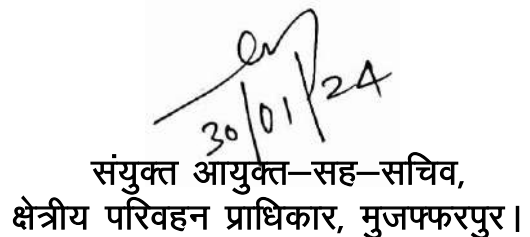 30/01/24
संयुक्त आयुक्त–सह–सचिव,
क्षेत्रीय परिवहन प्राधिकार, मुजफ्फरपुर।